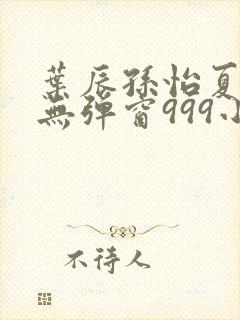 葉辰孫怡夏
無彈窗999小
不待人